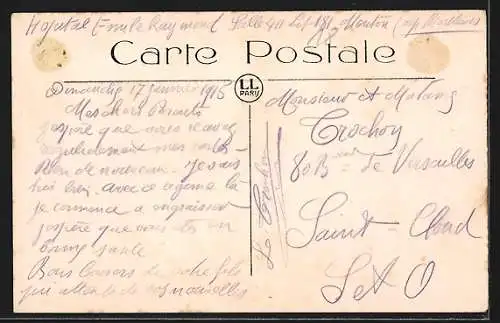 Hopital Emile Raymond Salle 411 Lit 181 Menton (Alp Maritimes
Carte Postale
LL
PARIS
Dimanche 17 Janvier 1915
Mes chers Parents
J'espère que vous recevez
régulièrement mes
Rien de nouveau. Je suis
très bien. Avec ce régime là
je commence a engraisser
J'espère que vous êtes en
bonne santé
Bons baisers de votre fils
qui attend de vos nouvelles
Monsieur et Madame
Trochon
80 Bvard de Versailles
Saint Cloud
S et O